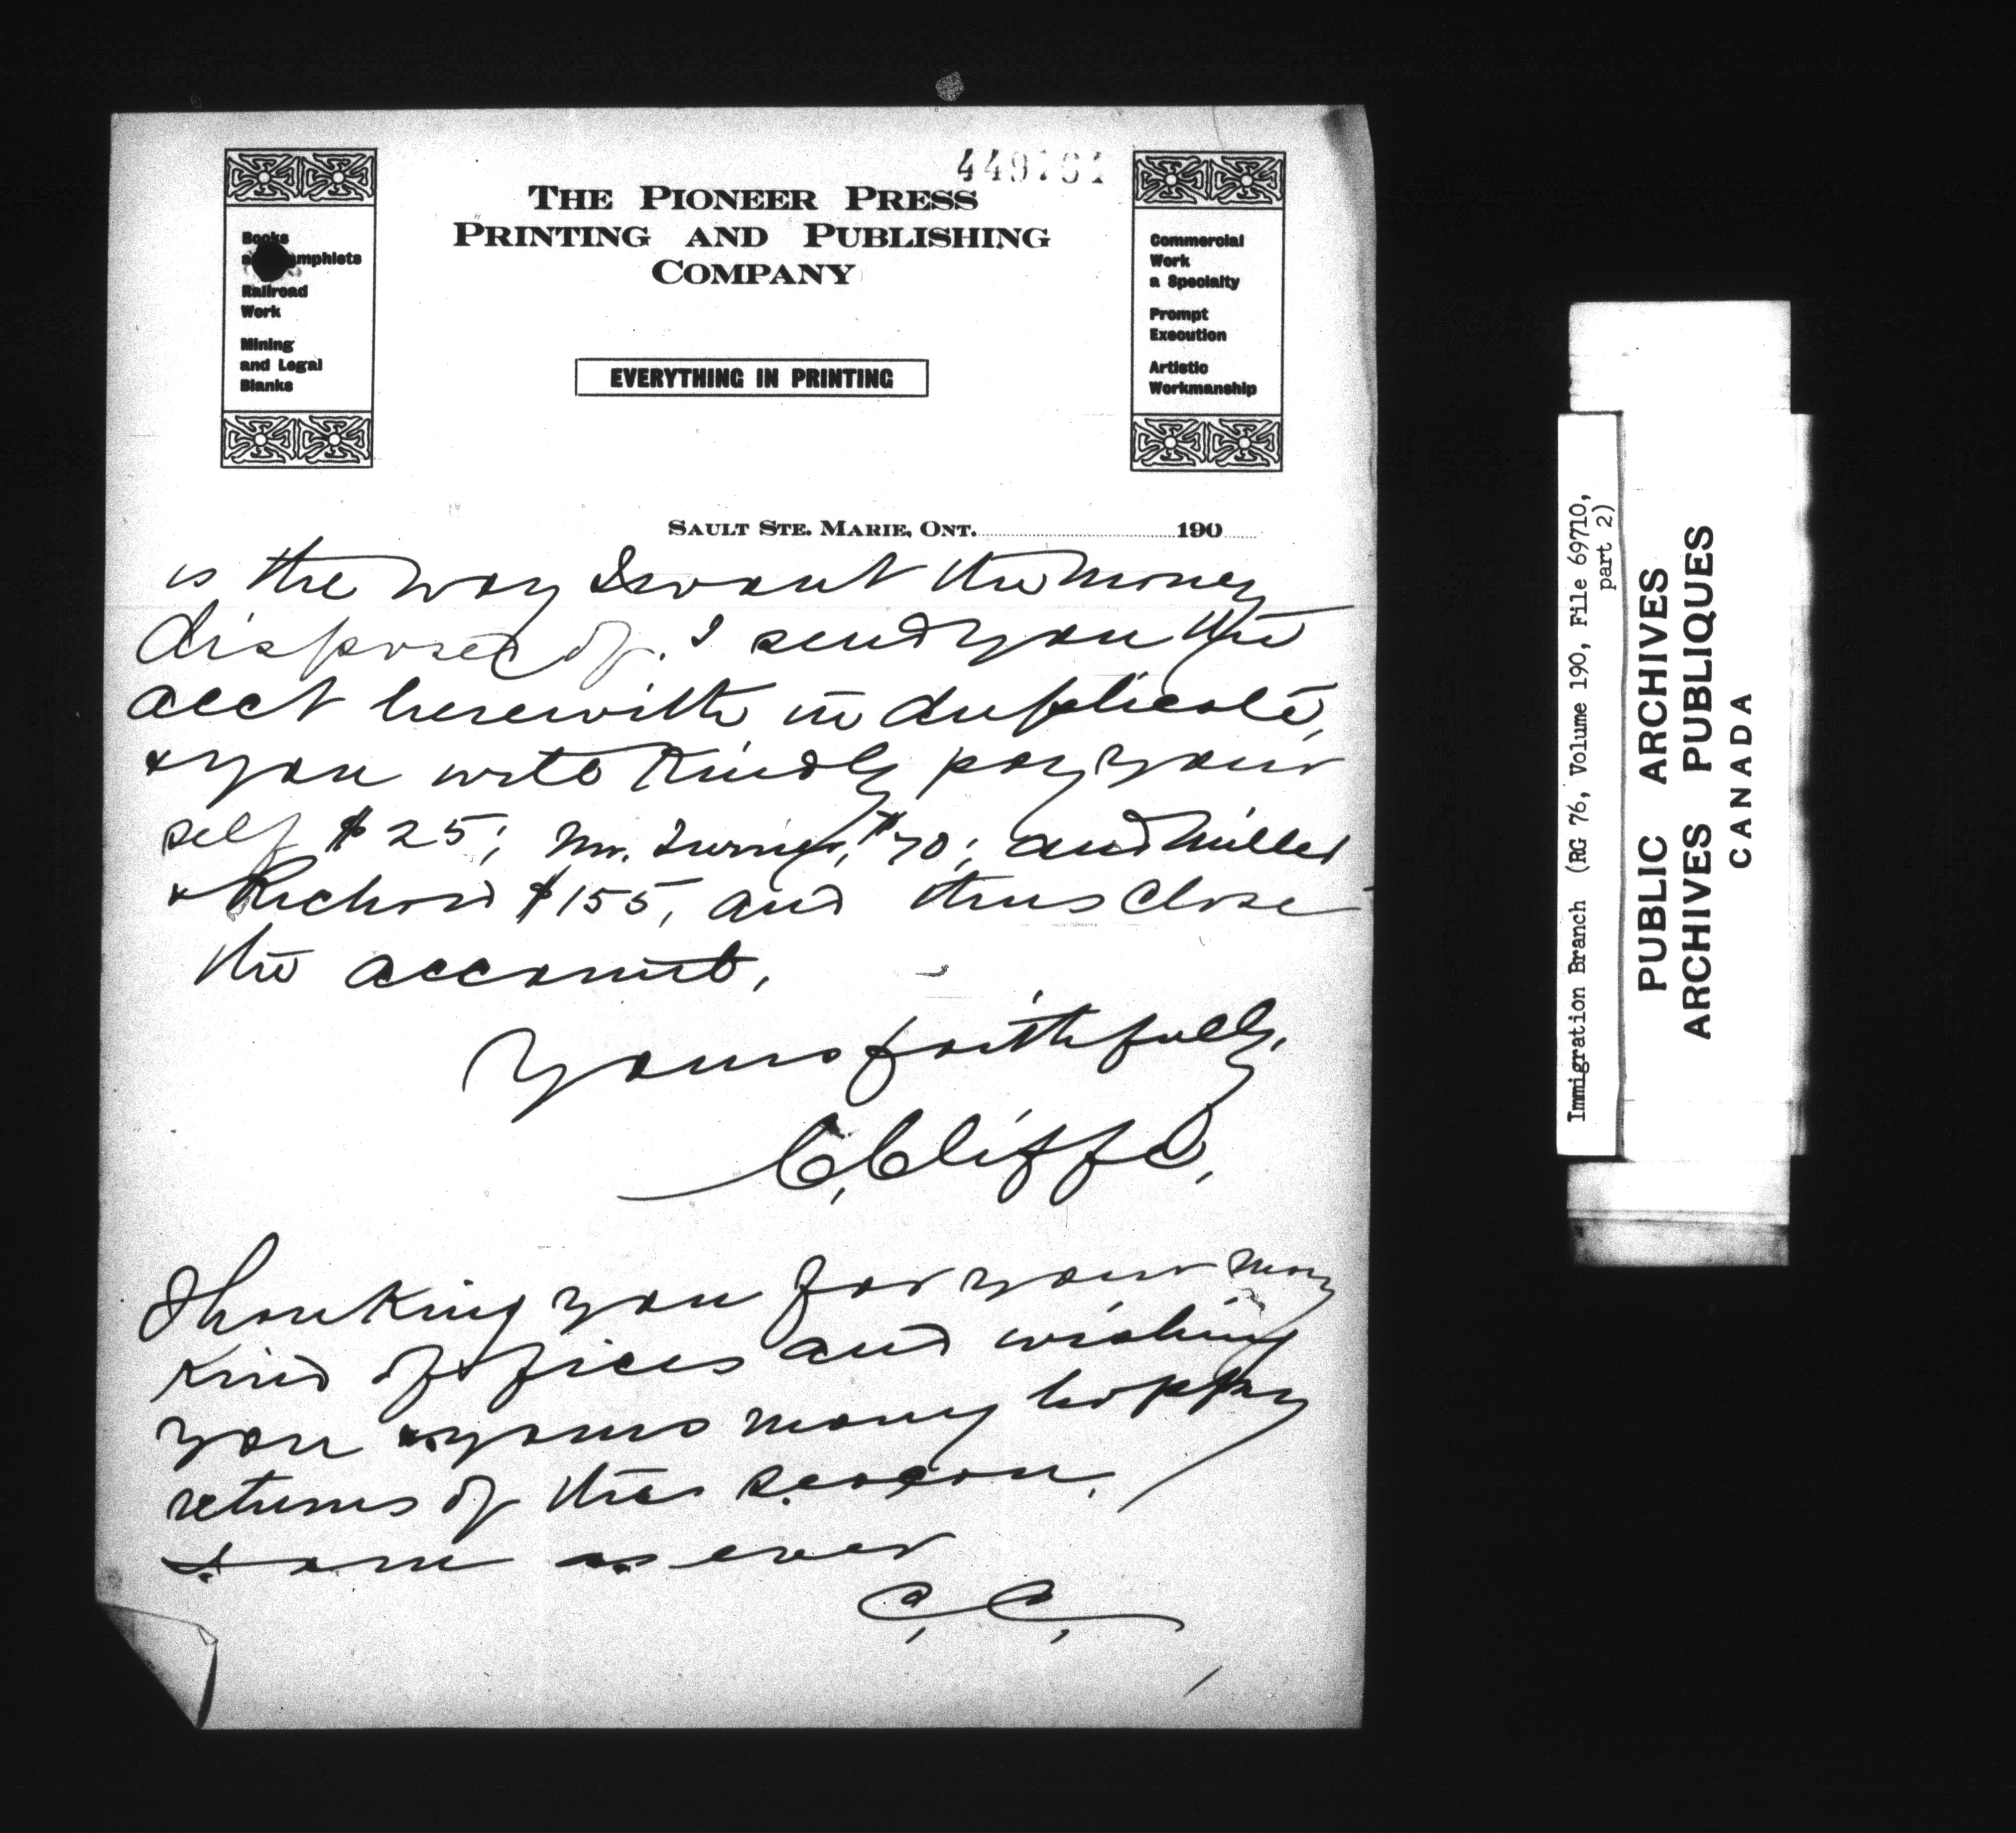 THE PIONEER PRESS
PRINTING AND PUBLISHING
COMPANY
Books
a amphlets
Railroad
Work
Mining
and Legal
Blanks
EVERYTHING IN PRINTING
Commercial
Work
a Specialty
Prompt
Execution
Artistic
Workmanship
SAULT STE. MARIE, ONT. 190
is the way I want the money
disposed of. I send you the
acct herewith in duplicate,
& you will kindly pay your
self $25; Mr. $70; and Miller
& Richard $155, and thus close
the account.
Yours faithfully,
C. Cliffe,
Thanking you for your many
kind offices and wishing
you & yours many happy
returns of the season.
I am as ever
C. C.
Immigration Branch (RG 76, Volume 190, File 69710,
part 2)
PUBLIC ARCHIVES
ARCHIVES PUBLIQUES
CANADA